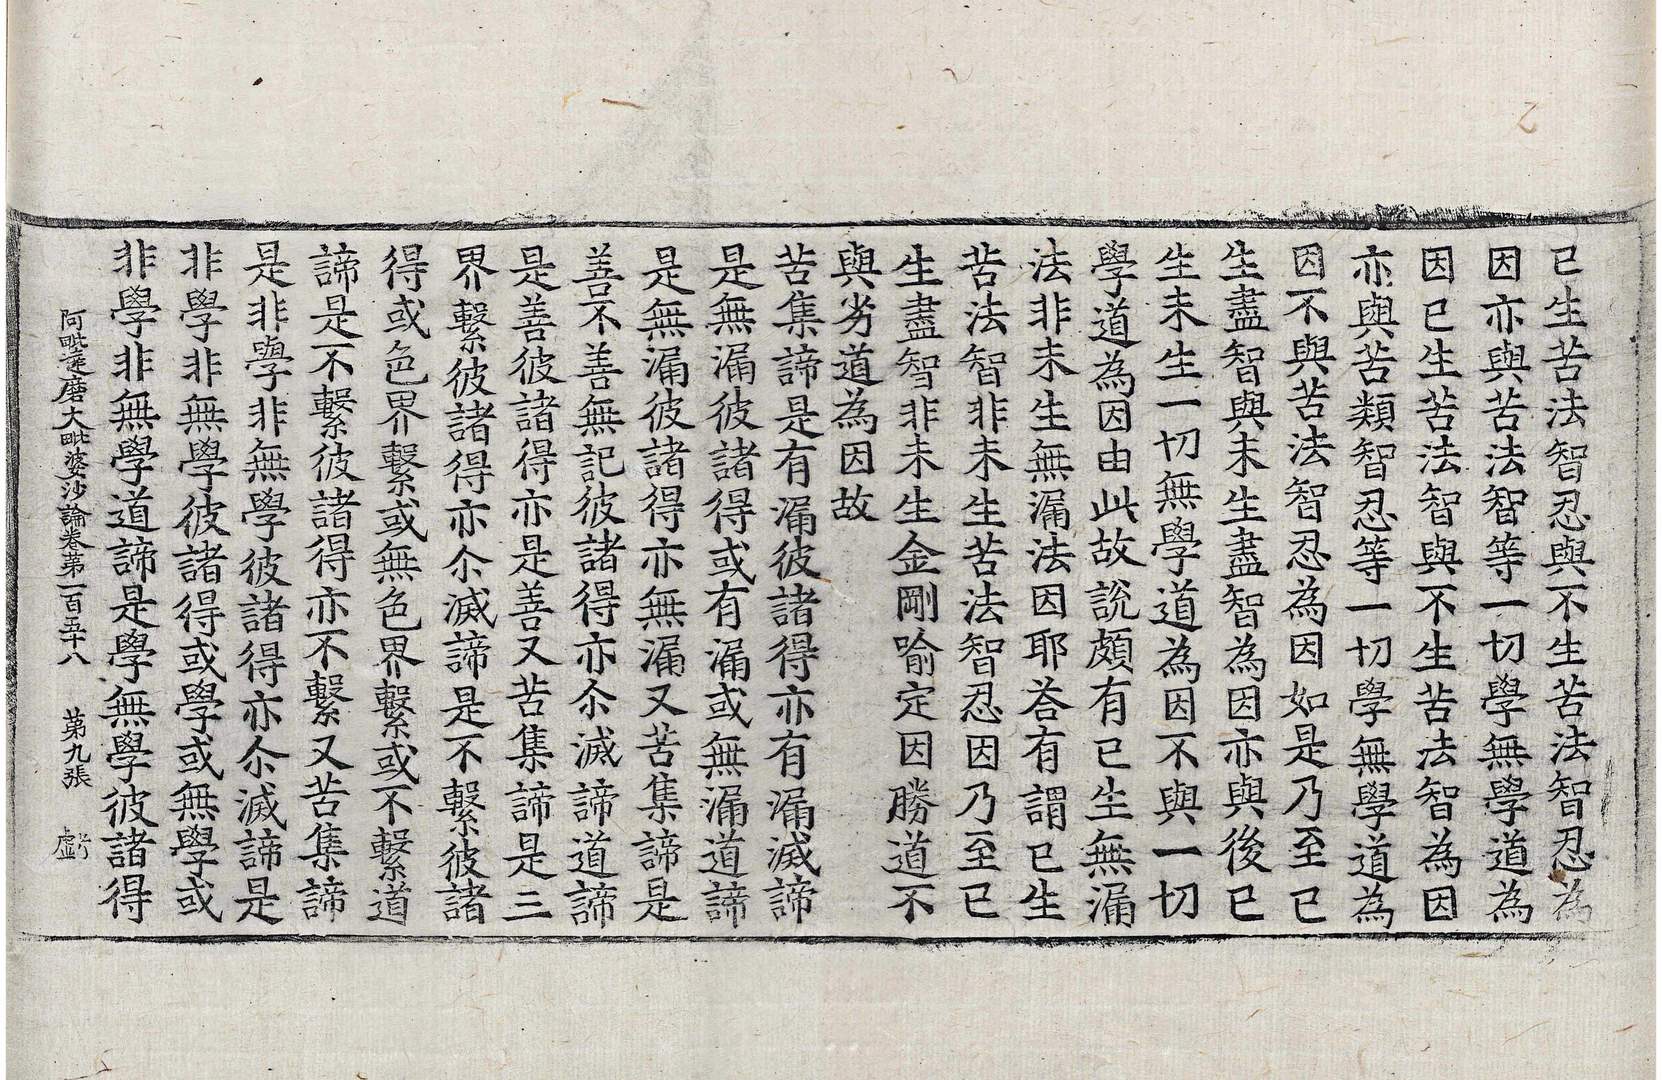 已生苦法智忍與不生苦法智忍為
因亦與苦法智等一切學無學道為
因已生苦法智與不生苦法智為因
亦與苦類智忍等一切學無學道為
因不與苦法智忍為因如是乃至已
生盡智與未生盡智為因亦與後已
生未生一切無學道為因不與一切
學道為因由此故說頗有已生無漏
法非未生無漏法因耶荅有謂已生
苦法智非未生苦法智忍因乃至已
生盡智非未生金剛喻定因勝道不
與劣道為因故
苦集諦是有漏彼諸得亦有漏滅諦
是無漏彼諸得或有漏或無漏道諦
是無漏彼諸得亦無漏又苦集諦是
善不善無記彼諸得亦尒滅諦道諦
是善彼諸得亦是善又苦集諦是三
界繫彼諸得亦尒滅諦是不繫彼諸
得或色界繫或無色界繫或不繫道
諦是不繫彼諸得亦不繫又苦集諦
是非學非無學彼諸得亦尒滅諦是
非學非無學彼諸得或學或無學或
非學非無學道諦是學無學彼諸得
阿毗達磨大毗婆沙論卷第一百五十八 第九張 虧